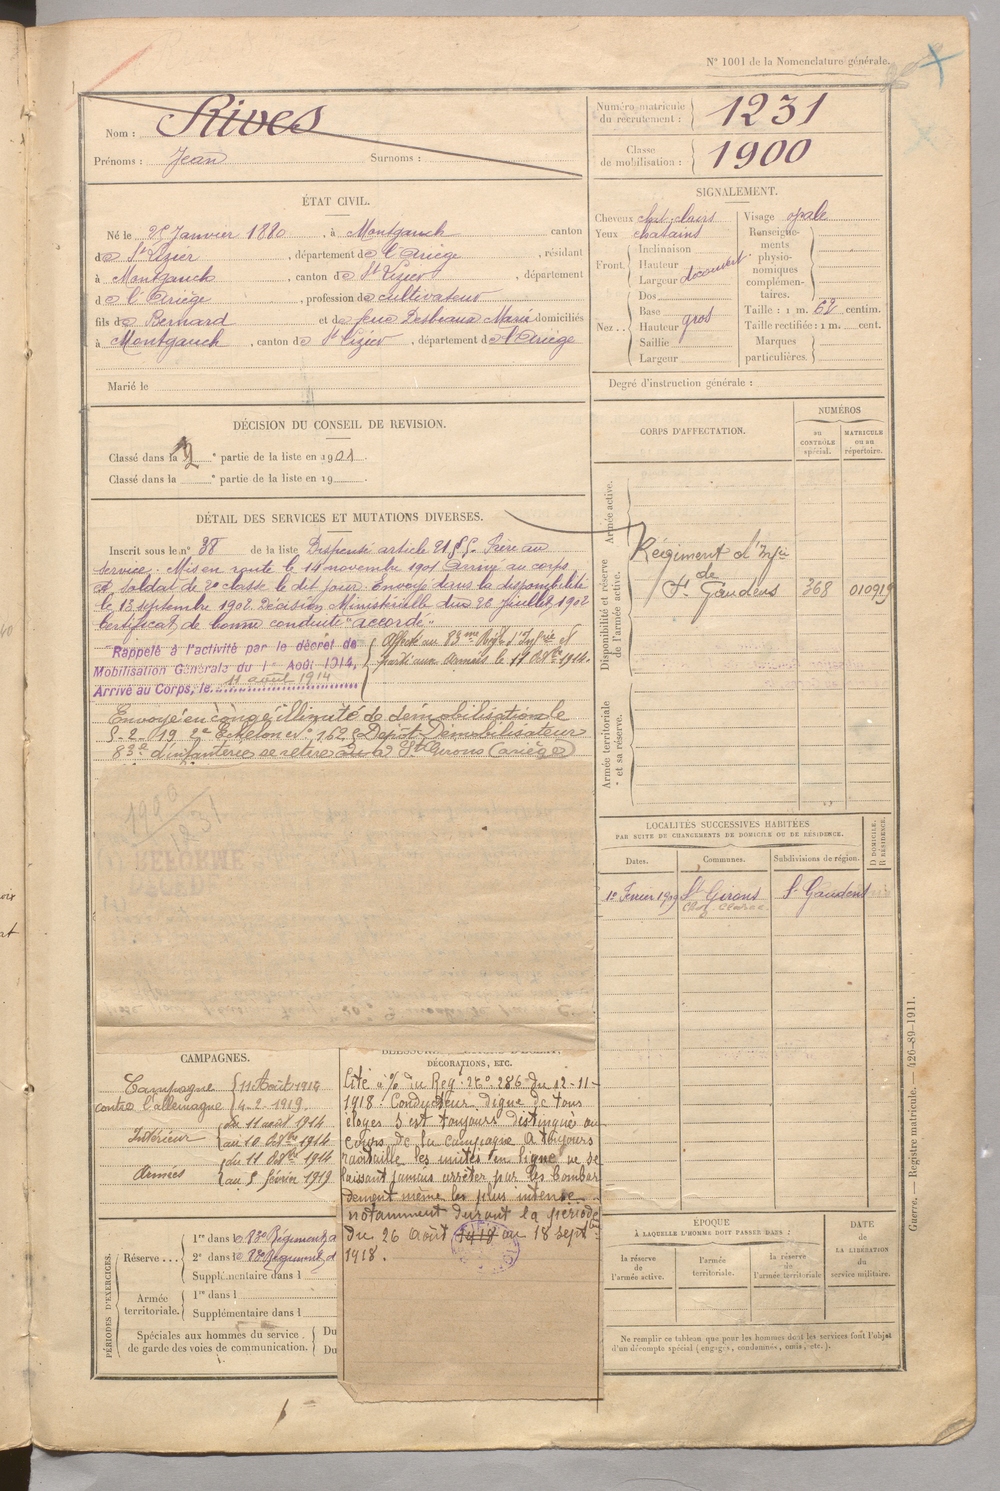 N° 1001 de la Nomenclature générale.
Nom : Rives
Prénoms : Jean Surnoms :
Numéro matricule du recrutement : 1231
Classe de mobilisation : 1900
ÉTAT CIVIL.
Né le 25 Janvier 1880, à Montgauch canton
de St Lizier, département de l'Ariège, résidant
à Montgauch, canton de St Lizier, département
de l'Ariège, profession de cultivateur
fils de Bernard et de feue Desbeaux Marie domiciliés
à Montgauch, canton de St Lizier, département de l'Ariège
Marié le
SIGNALEMENT.
Cheveux chat. clairs
Yeux chatains
Front
Inclinaison
Hauteur
Largeur
découvert
Nez
Dos
Base
Hauteur
Saillie
Largeur
gros
Visage ovale
Renseignements physionomiques complémentaires.
Taille : 1 m. 62 centim.
Taille rectifiée : 1 m. cent.
Marques particulières.
Degré d'instruction générale :
DÉCISION DU CONSEIL DE REVISION.
Classé dans la 2 e partie de la liste en 1901.
Classé dans la e partie de la liste en 19 .
DÉTAIL DES SERVICES ET MUTATIONS DIVERSES.
Inscrit sous le n° 38 de la liste Dispensé article 21 § 5. Frère au
service. Mis en route le 14 novembre 1901 Arrivé au corps
et soldat de 2e classe le dit jour. Envoyé dans la disponibilité
le 13 septembre 1902. Décision Ministérielle du 26 Juillet 1902
Certificat de bonne conduite "accordé"
Rappelé à l'activité par le décret de
Mobilisation Générale du 1er Août 1914,
Arrivé au Corps, le 11 août 1914
Affecté au 83me Regt d'Infrie et
parti aux Armées le 11 Octbre 1914.
Envoyé en congé illimité de démobilisation le
5-2-19 2e Echelon N° 162 § Dépôt Démobilisateur
83e d'infanterie se retire à St Girons (ariège)
1900
1231
CORPS D'AFFECTATION.
NUMÉROS
au CONTRÔLE spécial.
MATRICULE ou au répertoire.
Armée active.
Disponibilité et réserve de l'armée active.
Armée territoriale et sa réserve.
Régiment d'Infie
de
St Gaudens 368 010919
LOCALITÉS SUCCESSIVES HABITÉES
PAR SUITE DE CHANGEMENTS DE DOMICILE OU DE RÉSIDENCE.
Dates. Communes. Subdivisions de région. D DOMICILE. R RÉSIDENCE.
1er Février 1919 St Girons St Gaudens
CAMPAGNES.
Campagne contre l'allemagne
11 Août 1914
4-2-1919.
Intérieur
du 11 août 1914
au 10 Octbre 1914
Armées
du 11 Octbre 1914
au 5 février 1919
DÉCORATIONS, ETC.
Cité à l'o/ du Reg. n° 286 du 12-11-
1918. Conducteur digne de tous
éloges s'est toujours distingué au
cours de la campagne a toujours
ravitaillé les unités en ligne ne se
laissant jamais arrêter par les bombar
dement même les plus intense
notamment durant la période
du 26 août 1918 au 18 septbre
1918.
PÉRIODES D'EXERCICES.
Réserve
1re dans le 83e Régiment d
2e dans le 83e Régiment d
Supplémentaire dans l
Armée territoriale.
1re dans l
Supplémentaire dans l
Spéciales aux hommes du service
de garde des voies de communication.
Du
Du
ÉPOQUE
À LAQUELLE L'HOMME DOIT PASSER DANS :
la réserve de l'armée active.
l'armée territoriale.
la réserve de l'armée territoriale
DATE de LA LIBÉRATION du service militaire.
Ne remplir ce tableau que pour les hommes dont les services font l'objet
d'un décompte spécial (engagés, condamnés, omis, etc.).
Guerre. — Registre matricule. — 426-89-1911.